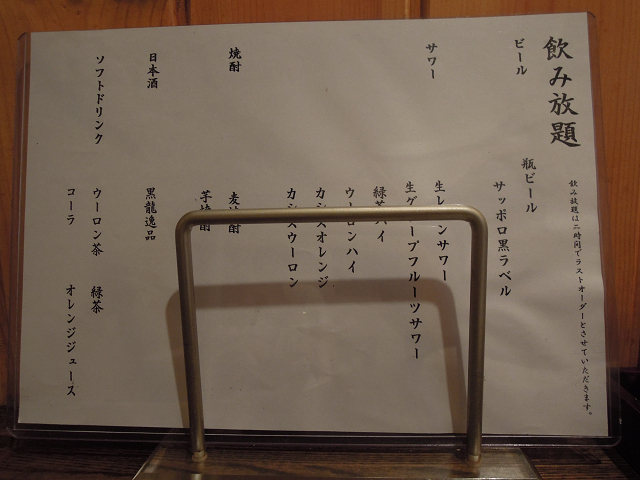 飲み放題
飲み放題は二時間でラストオーダーとさせていただきます。
ビール
瓶ビール
サッポロ黒ラベル
サワー
生レモンサワー
生グレープフルーツサワー
緑茶ハイ
ウーロンハイ
カシスオレンジ
カシスウーロン
焼酎
麦焼酎
芋焼酎
日本酒
黒龍逸品
ソフトドリンク
ウーロン茶 緑茶
コーラ オレンジジュース